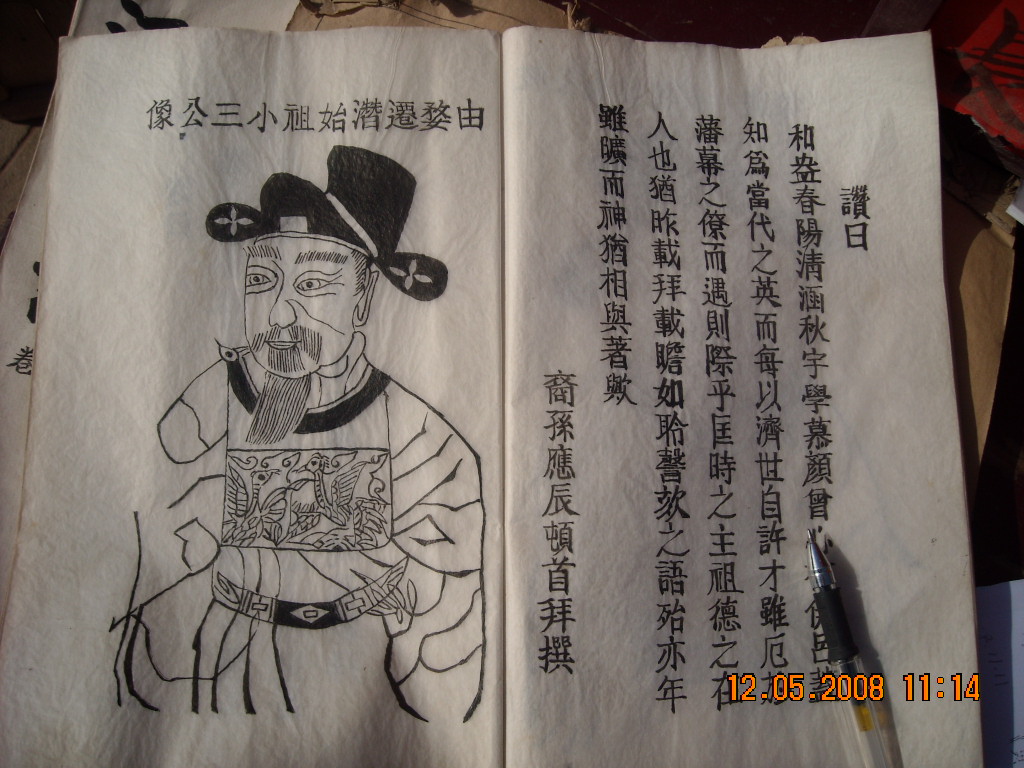 由婺遷潛始祖小三公像
讚曰
和盎春陽清涵秋宇學慕顏曾
知爲當代之英而每以濟世自許才雖厄於
藩幕之僚而遇則際乎匡時之主祖德之在
人也猶昨載拜載瞻如聆謦欬之語殆亦年
雖曠而神猶相與著歟
裔孫應辰頓首拜撰
卷
12.05.2008 11:14